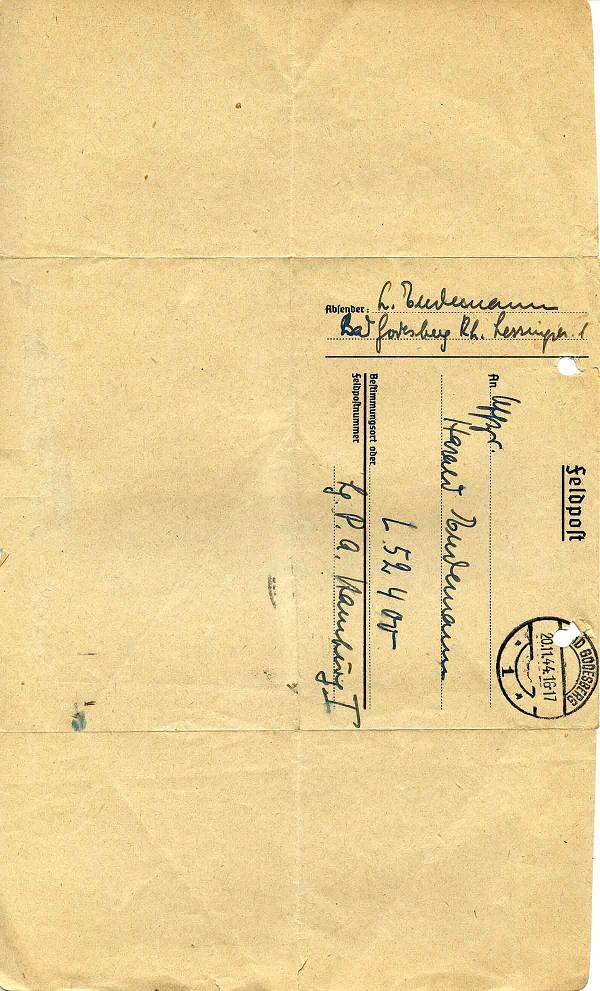 Absender: L. Tiedemann
Bad Godesberg Rh. Lessingstr.
Feldpost
BAD GODESBERG
20.11.44.16-17
1
An
Harald Tiedemann
L 52 400
Bestimmungsort oder
Feldpostnummer
Lg. P. A. Hamburg I